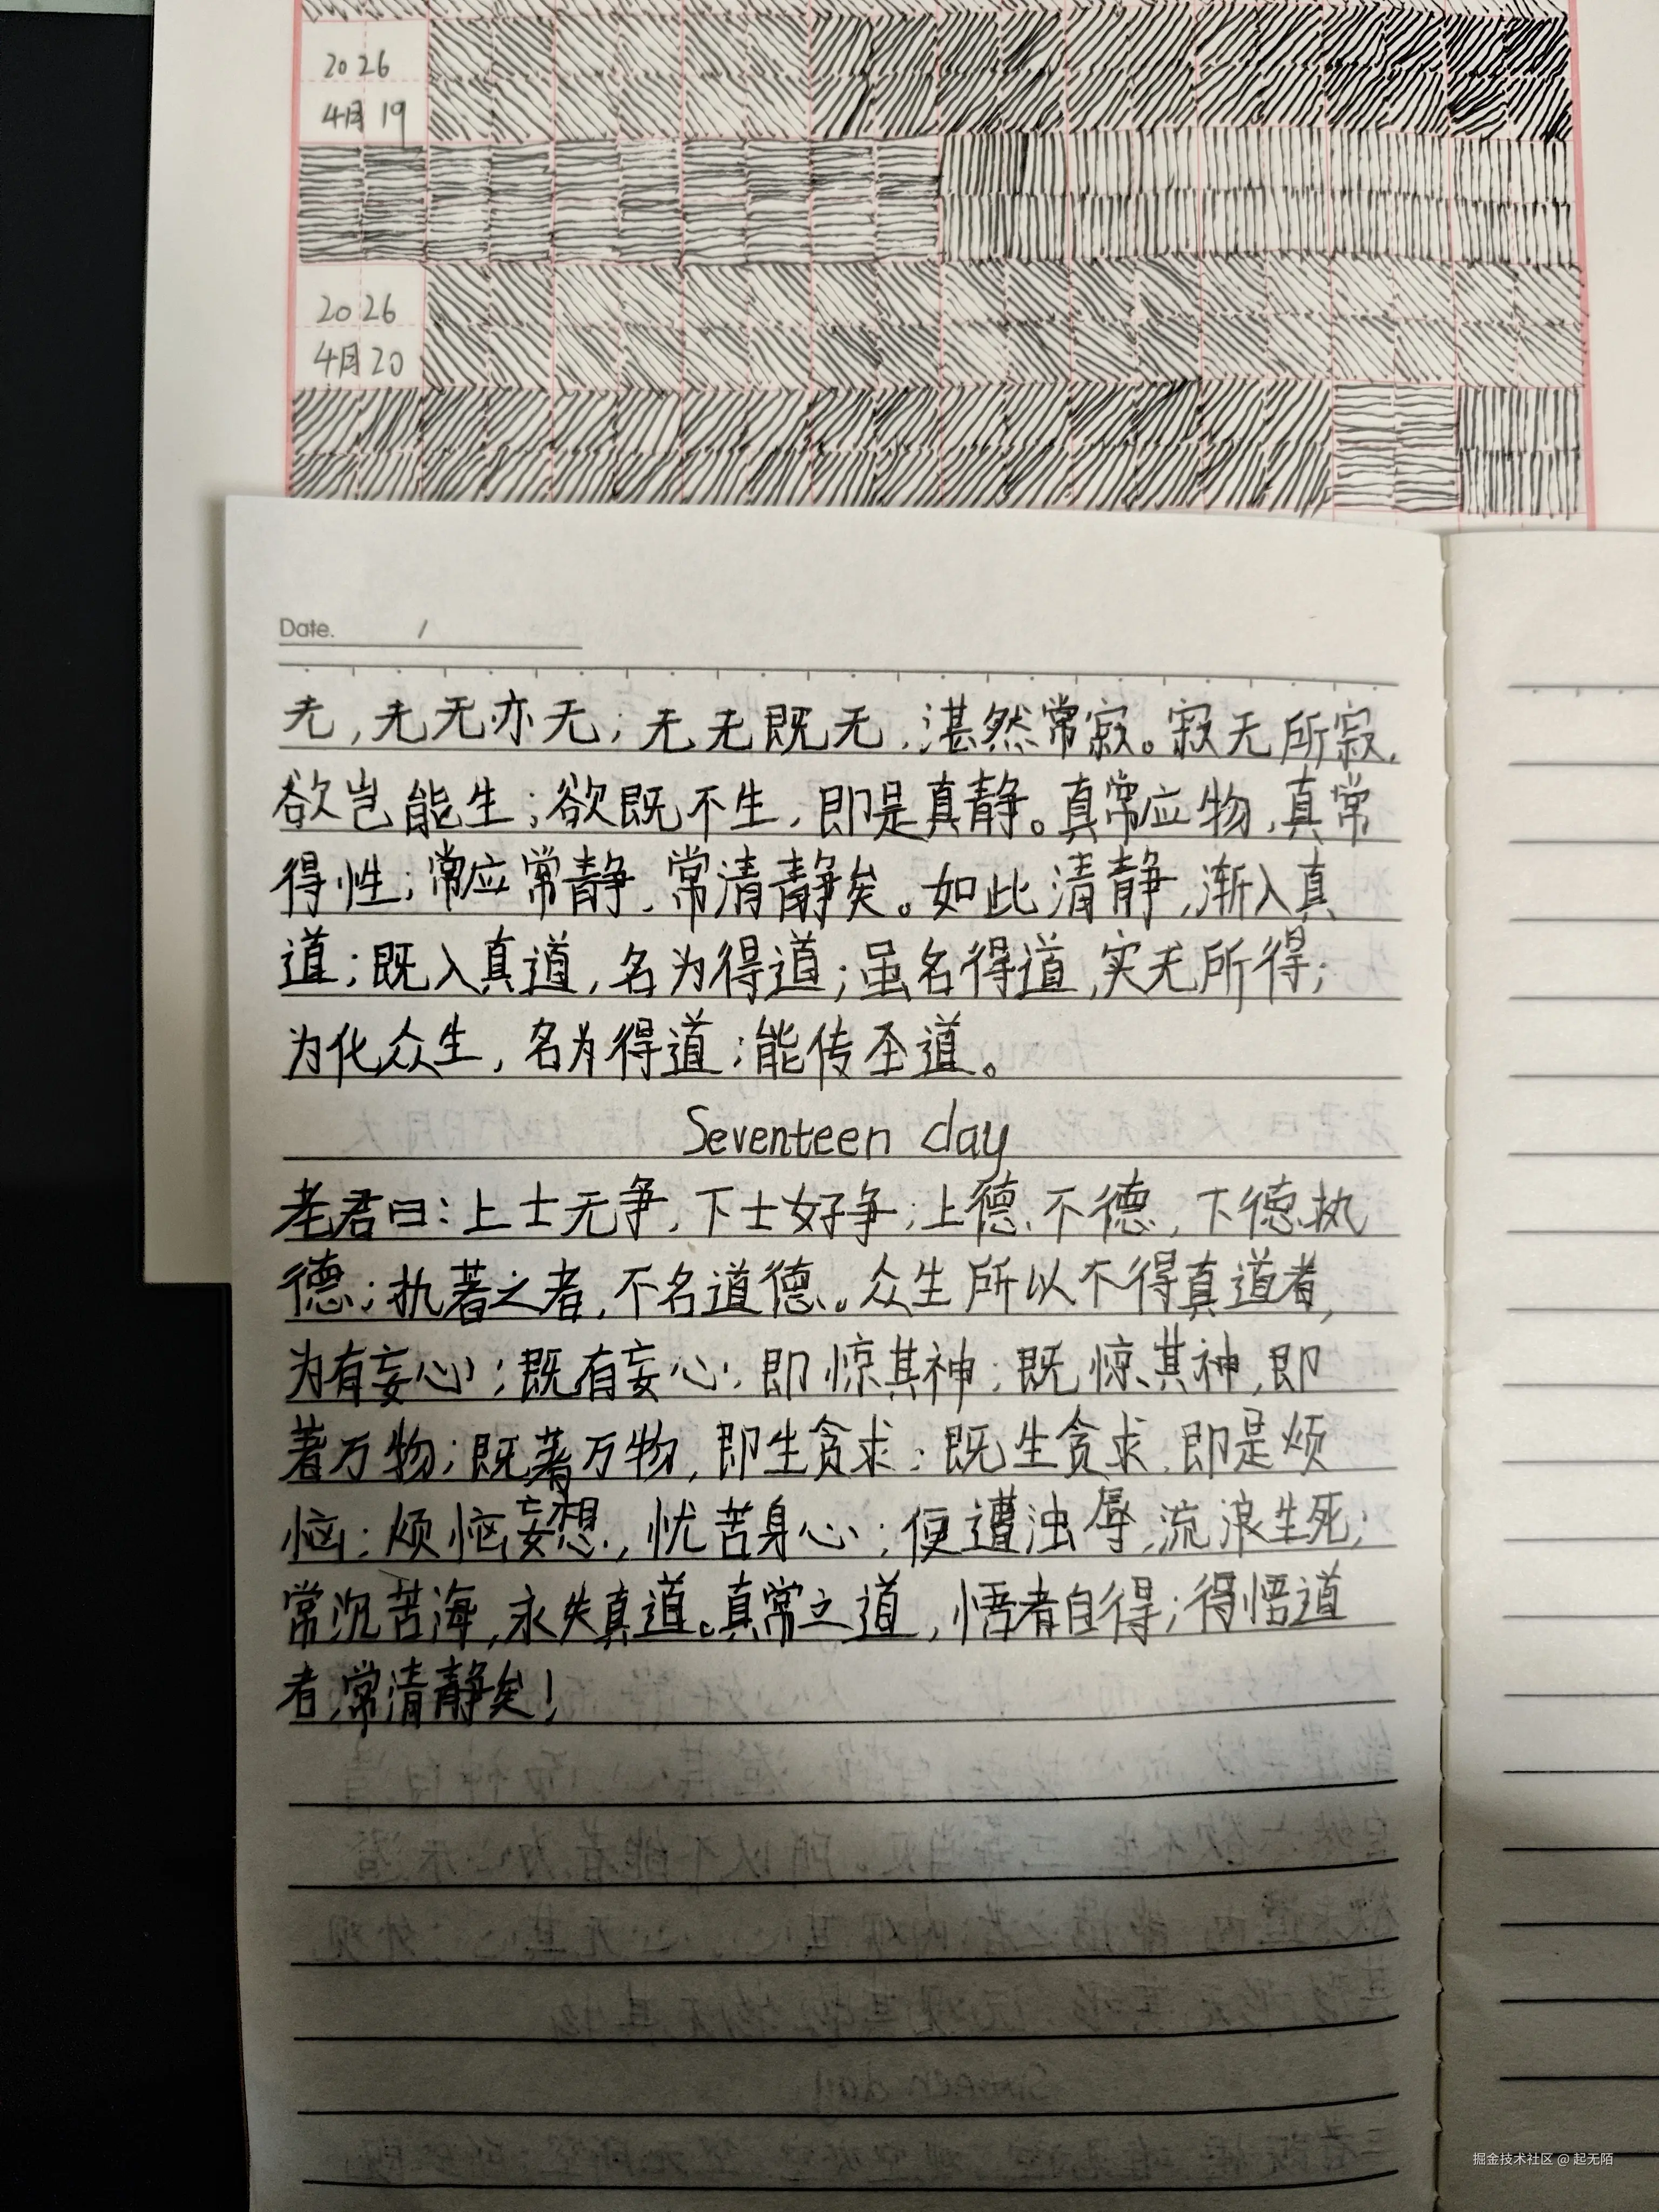 2026
4月19
2026
4月20
Date. /
无,无无亦无;无无既无,湛然常寂。寂无所寂,
欲岂能生;欲既不生,即是真静。真常应物,真常
得性;常应常静,常清静矣。如此清静,渐入真
道;既入真道,名为得道;虽名得道,实无所得;
为化众生,名为得道;能传圣道。
Seventeen day
老君曰:上士无争,下士好争;上德不德,下德执
德;执著之者,不名道德。众生所以不得真道者,
为有妄心;既有妄心,即惊其神;既惊其神,即
著万物;既著万物,即生贪求;既生贪求,即是烦
恼;烦恼妄想,忧苦身心;便遭浊辱,流浪生死;
常沉苦海,永失真道。真常之道,悟者自得;得悟道
者,常清静矣!
掘金技术社区 @ 起无陌